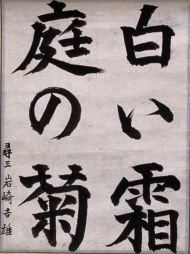 白い霜
庭の菊
尋三 岩崎吉雄